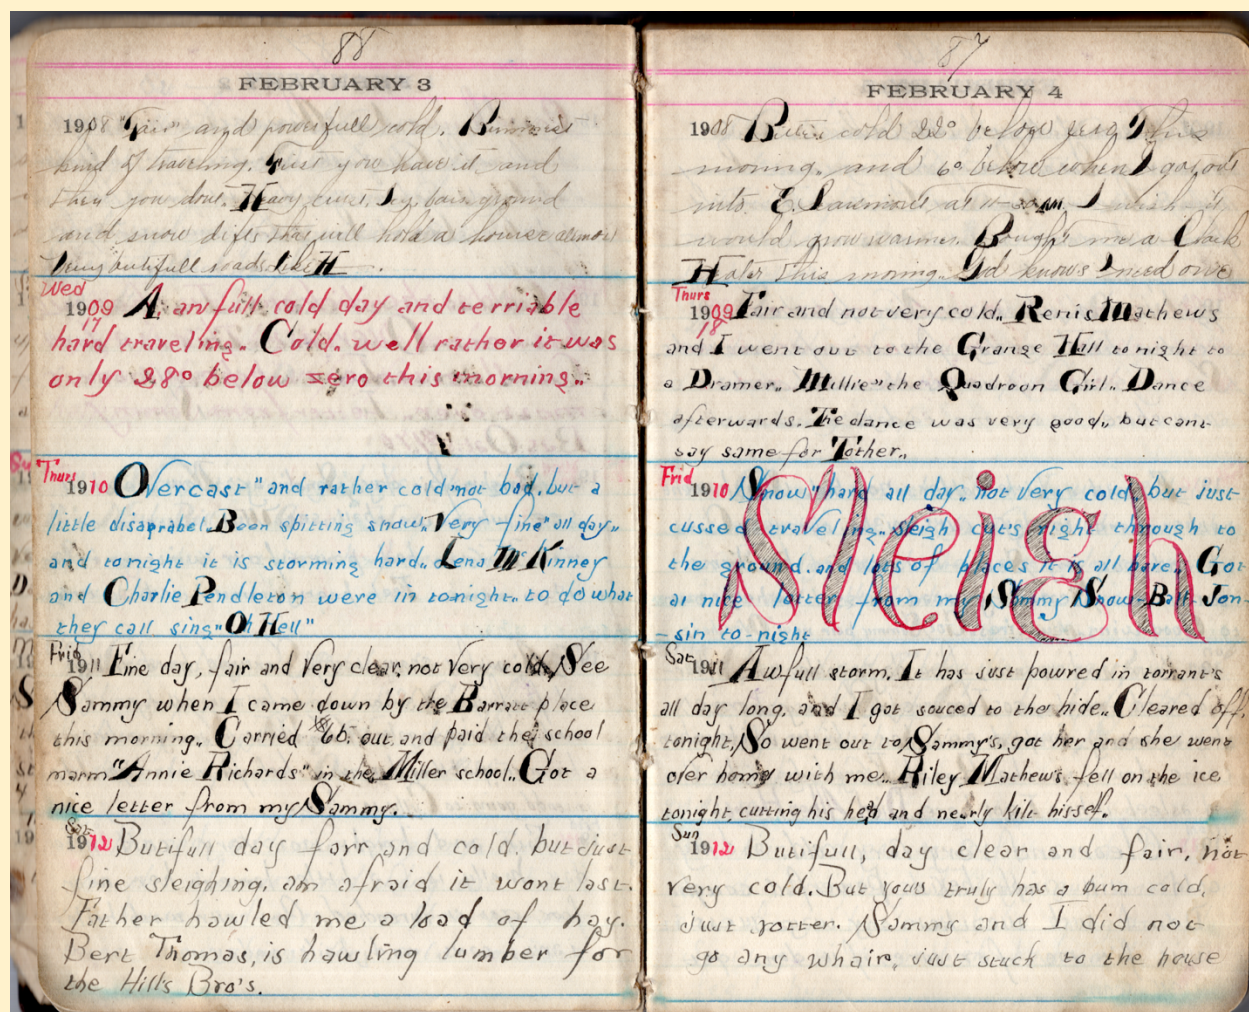 88
FEBRUARY 3
1908 "Fair" and powerfull cold. Bummest
kind of traveling. First you have it and
then you dont. Heavy crust. Icy bare ground
and snow difts that will hold a horse allmost
Very butifull roads. Like H—.
Wed
1909 A awfull cold day and terriable
17
hard traveling.. Cold.. well rather it was
only 28° below zero this morning..
Thurs
1910 Overcast" and rather cold not bad, but a
little disagrabel. Been spitting snow.. Very fine" all day..
and tonight it is storming hard.. Lena McKinney
and Charlie Pendleton were in tonight.. to do what
they call sing" Oh Hell"
Frid
1911 Fine day, fair and very clear, not very cold. See
Sammy when I came down by the Barratt place
this morning.. Carried 66. out and paid the school
marm "Annie Richards" in the Miller school.. Got a
nice letter from my Sammy.
Sat
1912 Butifull day farr and cold. but just
fine sleighing, am afraid it wont last.
Father hawled me a load of hay.
Bert Thomas, is hawling lumber for
the Hills Bro's.
87
FEBRUARY 4
1908 Bitter cold 22° below zero This
moring.. and 6° below when I got out
into E. at 11-30 AM. I wish it
would grow warmer. Bought me a Clark
Heater this moring. God knows I need one
Thurs
1909 Fair and not very cold.. Renis Mathews
18
and I went out to the Grange Hall tonight to
a Dramer.. Millie" the Quadroon Girl.. Dance
afterwards. The dance was very good.. but cant
say same for Tother..
Frid
1910 Snow" hard all day.. not very cold.. but just
cussed traveling.. sleigh cut's right through to
the ground. and lots of places it is all bare.. Got
a nice letter from my Sammy Snow-Ball-Jon-
-sin to-night
Sleigh
Sat
1911 Awfull storm. It has just powred in torrant's
all day long. and I got souced to the hide.. Cleared off.
tonight, So went out to Sammy's, got her and she went
over home with me.. Riley Mathews fell on the ice
tonight, cutting his head and nearly kilt hisself.
Sun
1912 Butifull, day clear and fair, not
very cold. But yours truly has a bum cold,
just rotter. Sammy and I did not
go any whair, just stuck to the house